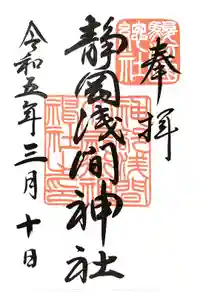 奉拝
静岡浅間神社
令和五年三月十日